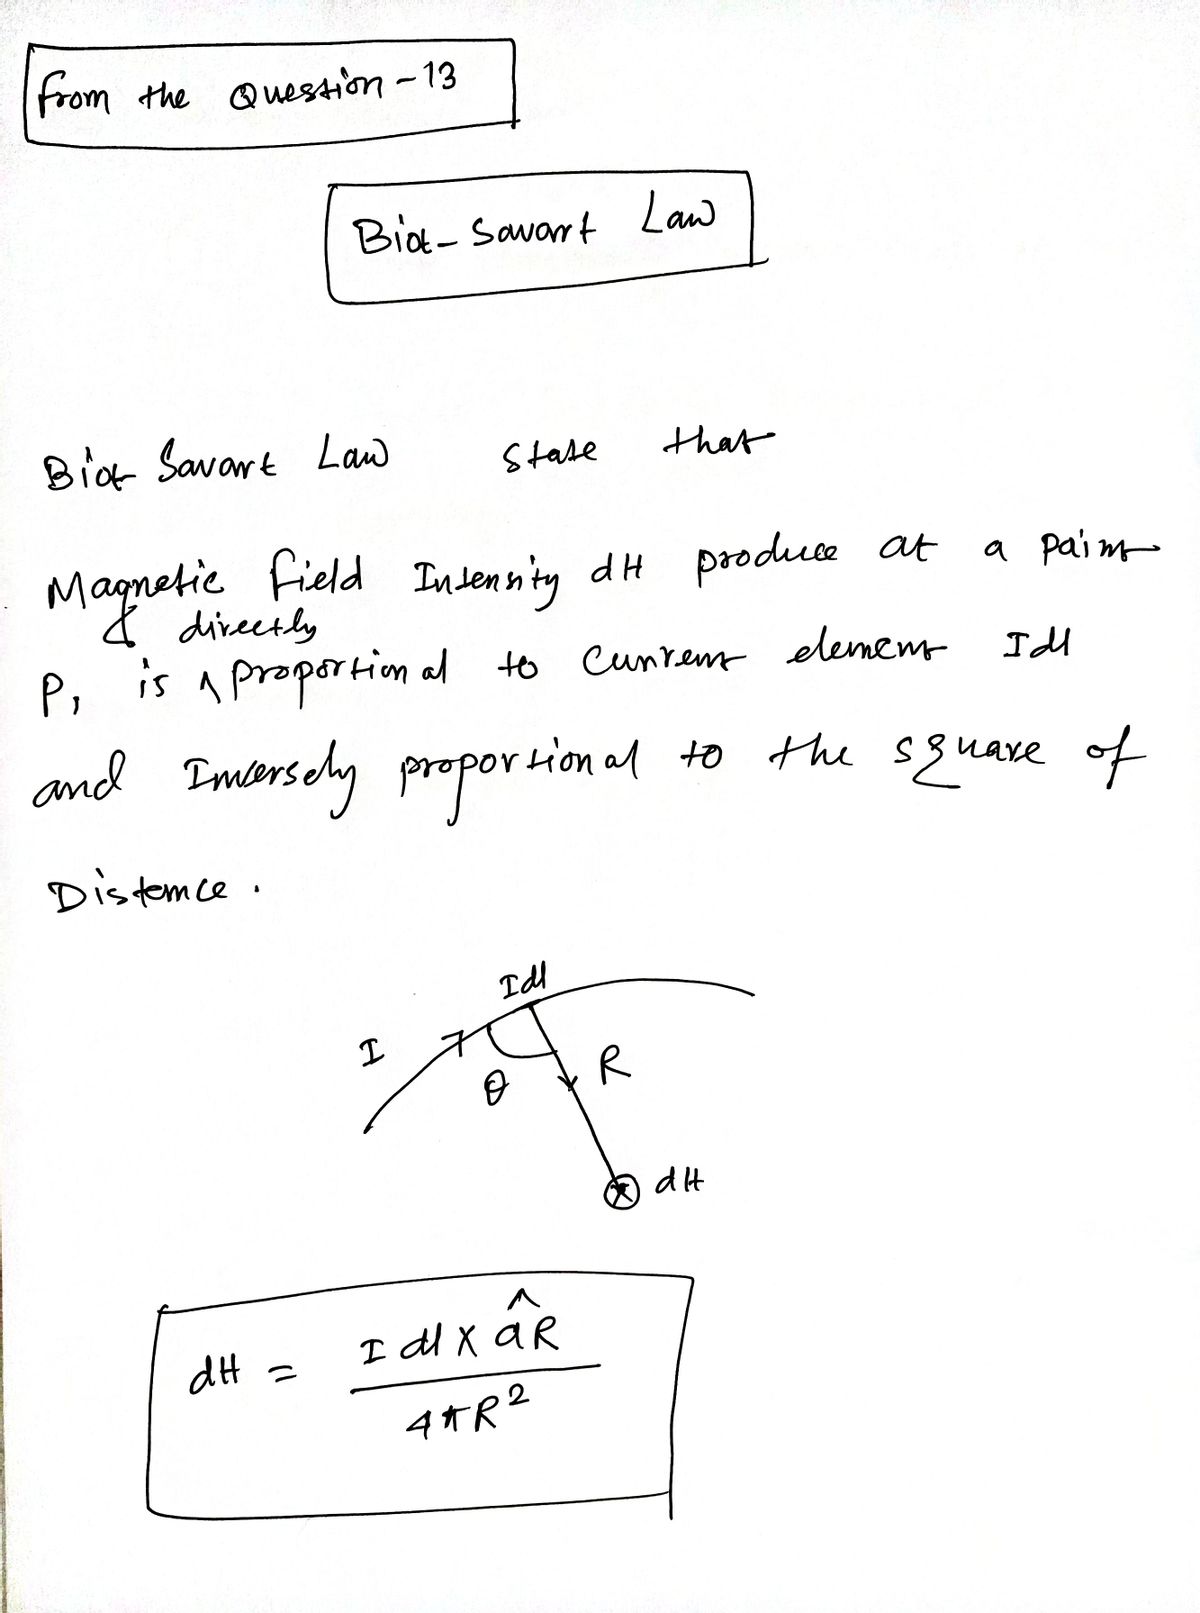 From the Question-13
Biot-Savart Law
Biot Savart Law state that
Magnetic field Intensity dH produce at a point
& directly
P, is ∧ proportional to current element Idl
and Inversely proportional to the square of
Distance.
Idl
I
R
θ
dH
dH = I dl X âR
4πR²